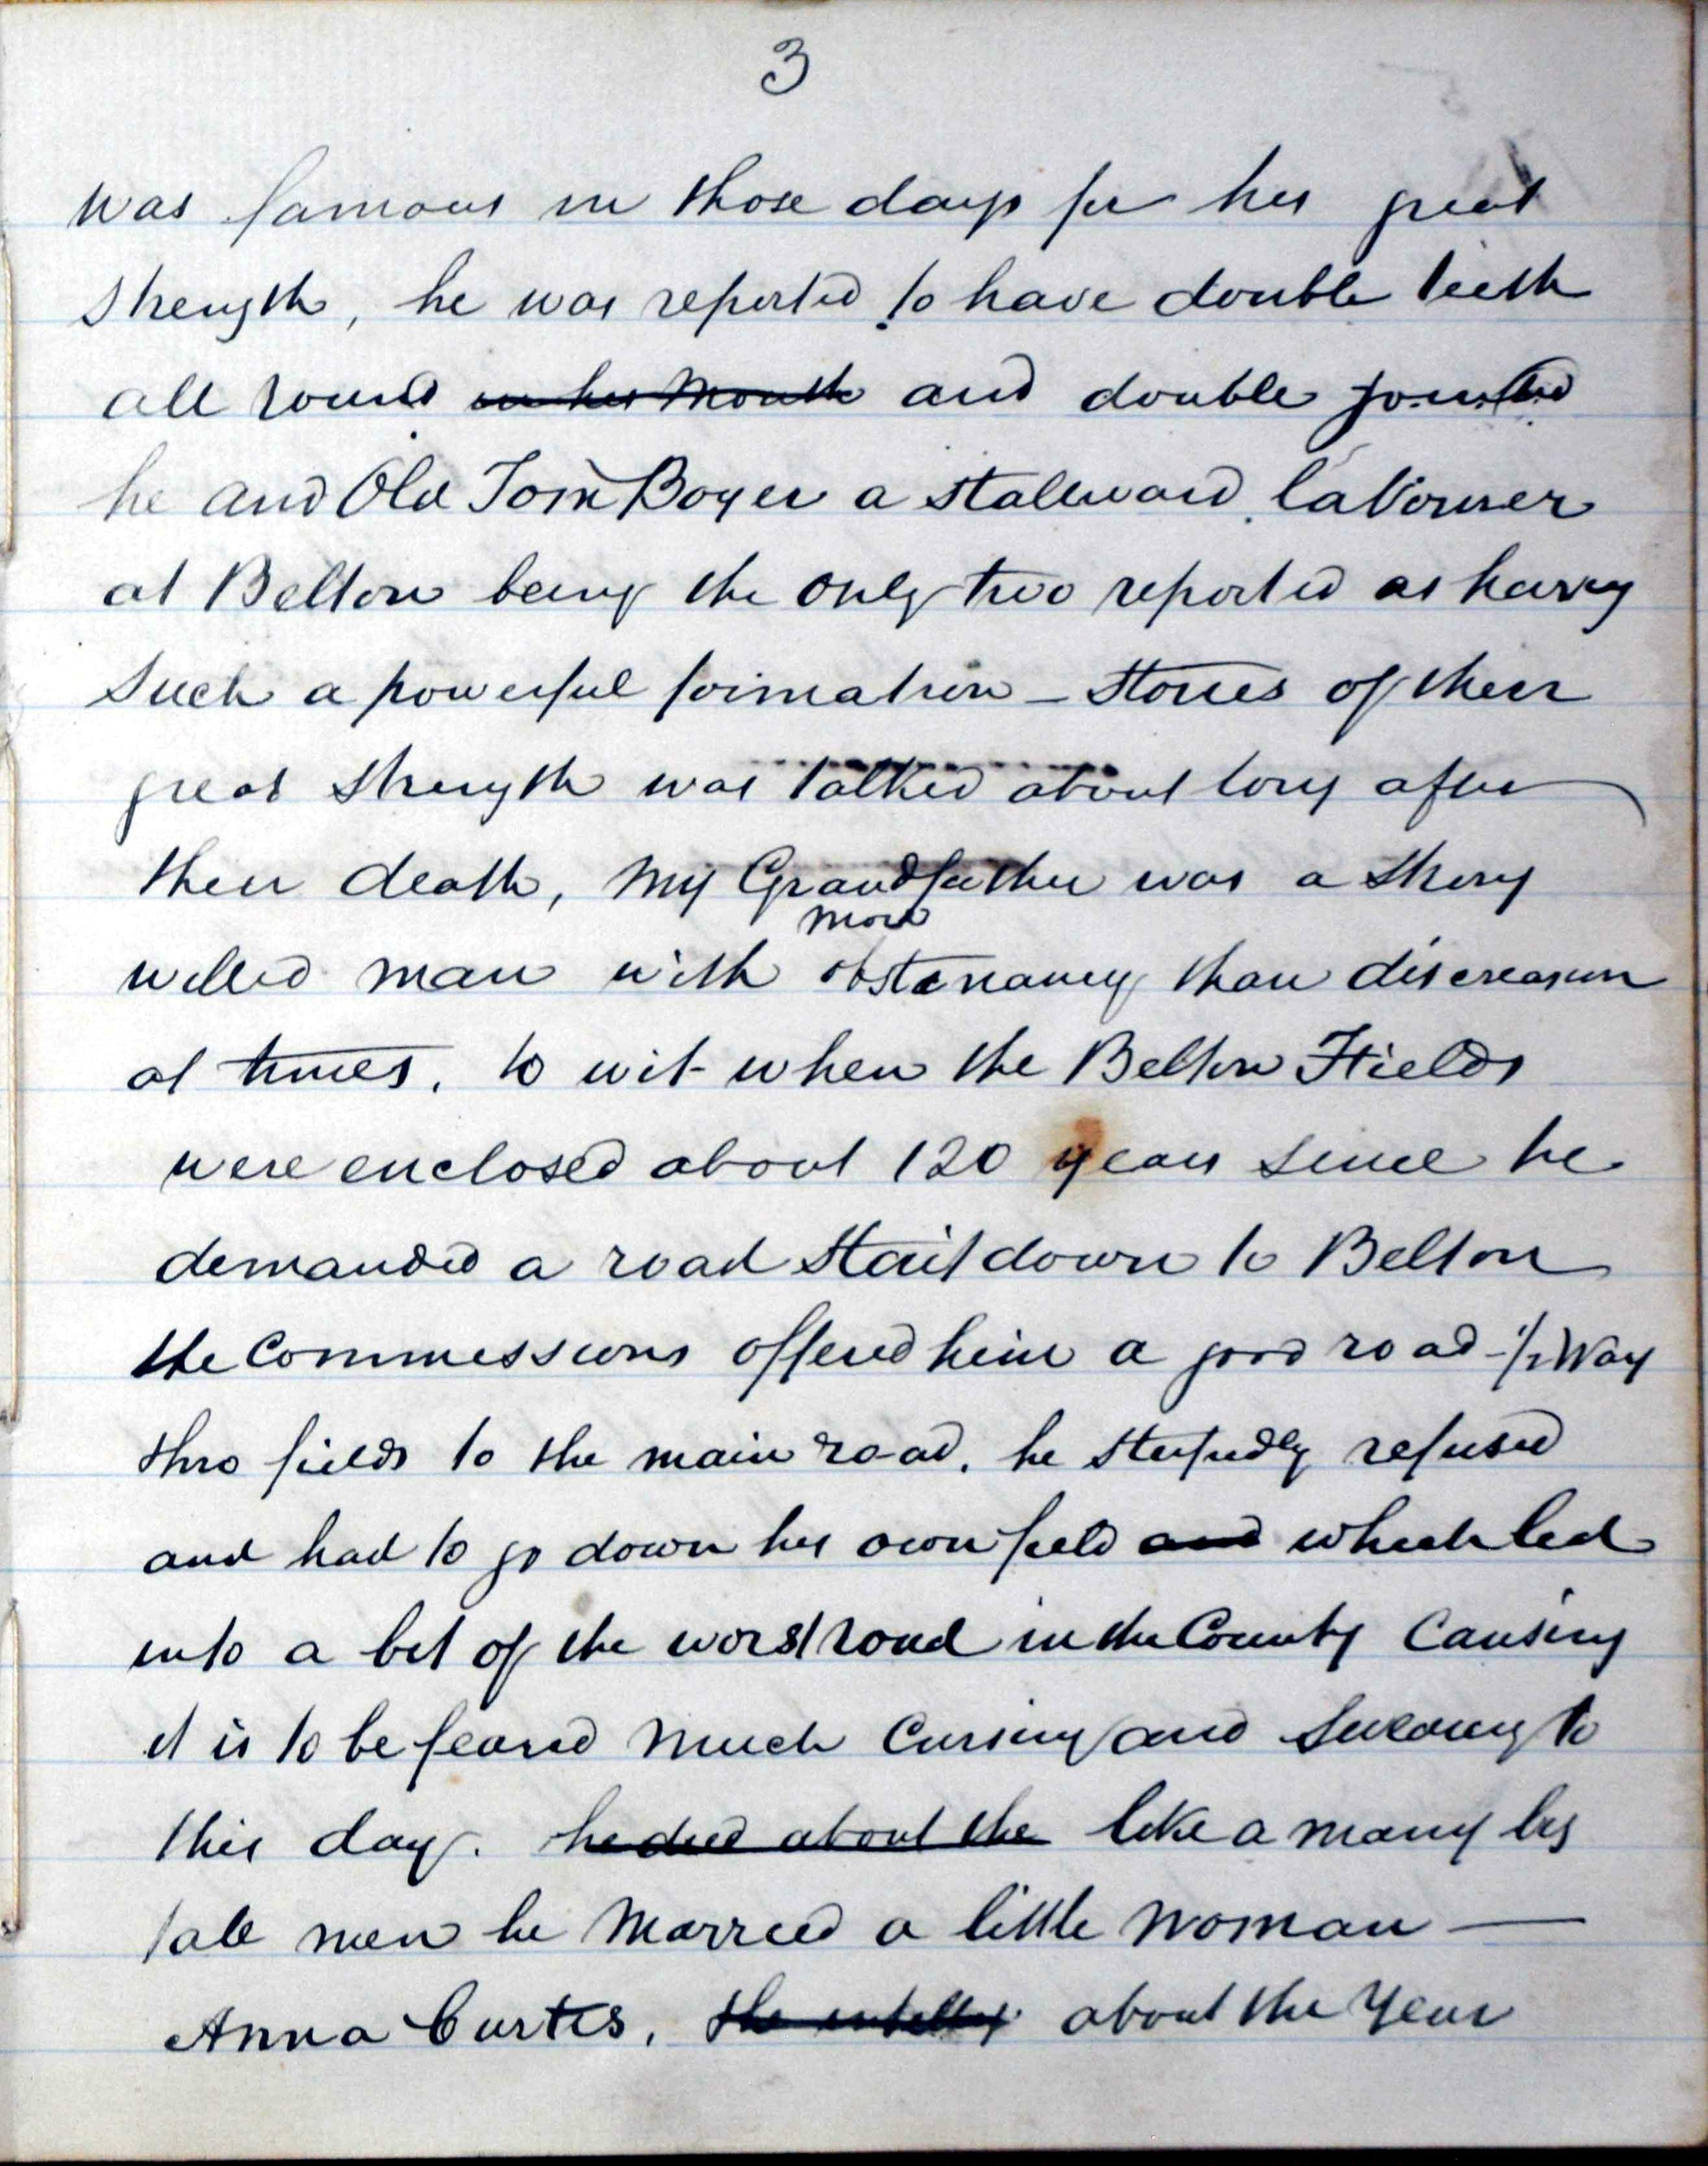 3
was famous in those days for his great
strength, he was reported to have double teeth
all round in his mouth and double jointed
he and Old Tom Boyer a stalward labourer
at Belton being the only two reported as having
such a powerful formation - stories of their
great strength was talked about long after
their death, My Grandfather was a strong
more
willed man with obstanancy than discreasion
at times. to wit when the Belton Fields
were enclosed about 120 years since he
demanded a road Strait down to Belton
the Commissions offered him a good road 1/2 Way
thro fields to the main road. he stupidly refused
and had to go down his own field and which led
into a bit of the worst road in the County Causing
it is to be feared much Cursing and Swearing to
this day. he died about the like a many big
tall men he Married a little Woman —
Anna Curtis. the about the Year